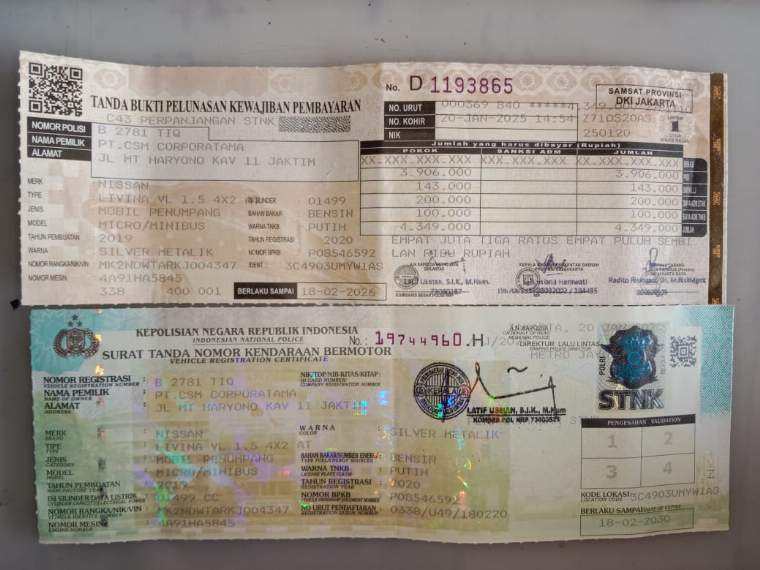 No. D 1193865
TANDA BUKTI PELUNASAN KEWAJIBAN PEMBAYARAN
SAMSAT PROVINSI
DKI JAKARTA
C43 PERPANJANGAN STNK
NO. URUT 000369 840 ******4
NO. KOHIR 20-JAN-2025 14:54
NIK 250120
NOMOR POLISI B 2781 TIQ
NAMA PEMILIK PT.CSM CORPORATAMA
ALAMAT JL MT HARYONO KAV 11 JAKTIM
Jumlah yang harus dibayar (Rupiah)
POKOK SANKSI ADM JUMLAH
XX.XXX.XXX XX.XXX.XXX XX.XXX.XXX
3.906.000 3.906.000
143.000 143.000
200.000 200.000
100.000 100.000
4.349.000 4.349.000
EMPAT JUTA TIGA RATUS EMPAT PULUH SEMBI
LAN RIBU RUPIAH
MERK NISSAN
TYPE LIVINA VL 1.5 4X2 01499
JENIS MOBIL PENUMPANG BAHAN BAKAR BENSIN
MODEL MICRO/MINIBUS WARNA TNKB PUTIH
TAHUN PEMBUATAN 2019 TAHUN REGISTRASI 2020
WARNA SILVER METALIK NOMOR BPKB P08546592
NOMOR RANGKA/NIK/VIN MK2NDWTARKJ004347 IDENT 3C4903UMYWIAS
NOMOR MESIN 4A91HA5845
338 400 001 BERLAKU SAMPAI 18-02-2026
KEPOLISIAN NEGARA REPUBLIK INDONESIA
INDONESIAN NATIONAL POLICE
No.: 19744960.H
SURAT TANDA NOMOR KENDARAAN BERMOTOR
VEHICLE REGISTRATION CERTIFICATE
DIREKTUR LALU LINTAS
METRO JA
NOMOR REGISTRASI B 2781 TIQ
VEHICLE REGISTRATION NUMBER
NAMA PEMILIK PT.CSM CORPORATAMA
NAME OF OWNER
ALAMAT JL MT HARYONO KAV 11 JAKTIM
ADDRESS
POLRI
STNK
LATIF USMAN, S.I.K., M.Hum
KOMBES POL NRP
MERK NISSAN WARNA SILVER METALIK
BRAND COLOR
TYPE LIVINA VL 1.5 4X2 AT
TYPE
JENIS MOBIL PENUMPANG BENSIN
CATEGORY
MODEL MICRO/MINIBUS WARNA TNKB PUTIH
MODEL
TAHUN PEMBUATAN 2019 TAHUN REGISTRASI 2020
ISI SILINDER/DAYA LISTRIK 01499 CC NOMOR BPKB P08546592
NOMOR RANGKA/NIK/VIN MK2NDWTARKJ004347 NO URUT PENDAFTARAN 0338/U49/180220
NOMOR MESIN 4A91HA5845
ENGINE NUMBER
PENGESAHAN VALIDATION
1 2
3 4
KODE LOKASI 3C4903UMYWIAS
LOCATION CODE
BERLAKU SAMPAI
18-02-2030